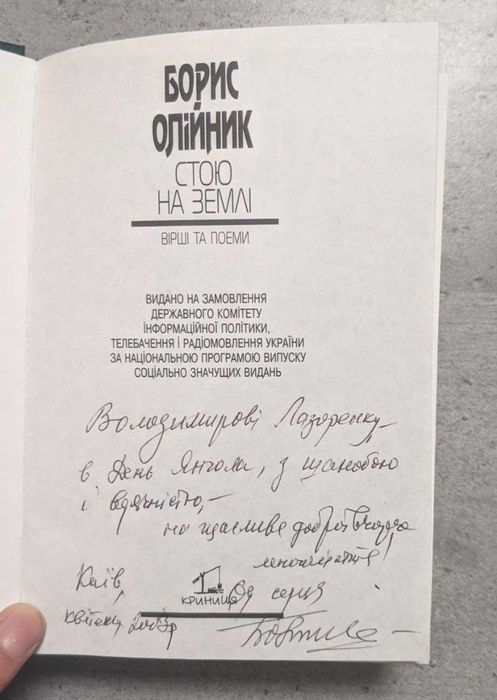 БОРИС
ОЛІЙНИК
СТОЮ
НА ЗЕМЛІ
ВІРШІ ТА ПОЕМИ
ВИДАНО НА ЗАМОВЛЕННЯ
ДЕРЖАВНОГО КОМІТЕТУ
ІНФОРМАЦІЙНОЇ ПОЛІТИКИ,
ТЕЛЕБАЧЕННЯ І РАДІОМОВЛЕННЯ УКРАЇНИ
ЗА НАЦІОНАЛЬНОЮ ПРОГРАМОЮ ВИПУСКУ
СОЦІАЛЬНО ЗНАЧУЩИХ ВИДАНЬ
Володимирові Лазоренку,
в День Янгола, з шанобою
і вдячністю, –
на щасливе
Від серця
Київ
КРИНИЦЯ